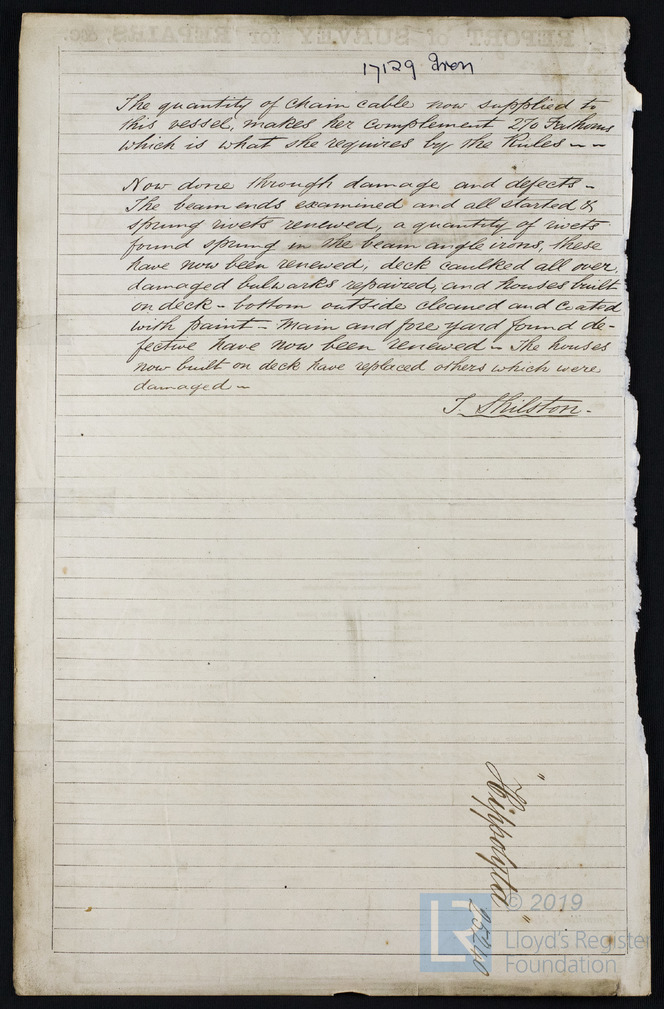 REPORT of SURVEY for REPAIRS, &c.
17129 Iron
The quantity of Chain cable now supplied to
this vessel, makes her Complement 270 Fathoms
which is what she requires by the Rules - -
Now done through damage and defects -
The beam ends examined and all started &
sprung rivets renewed, a quantity of rivets
found sprung in the beam angle irons, these
have now been renewed, deck caulked all over,
damaged bulwarks repaired, and houses built
on deck - bottom outside cleaned and Coated
with paint - Main and fore yard found de-
fective have now been renewed - The houses
now built on deck have replaced others which were
damaged -
T. Shilston -
"Hippolyta"
25240
© 2019
Lloyd's Register
Foundation
LR